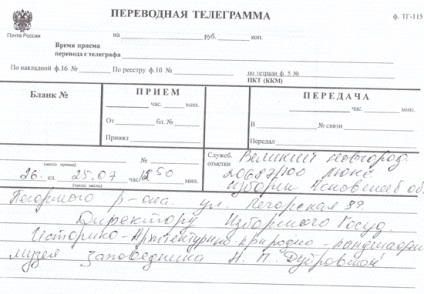 ПЕРЕВОДНАЯ ТЕЛЕГРАММА
ф. ТГ-115
Почта России
на руб. коп.
Время приема
перевода с телеграфа
По накладной ф.16 № По реестру ф.10 № по тетради ф. 5 №
ПКТ (ККМ)
Бланк №
ПРИЕМ
час. мин.
От бл.№
Принял
ПЕРЕДАЧА
час. мин.
В № связи
Передал
№
(место приема)
26 сл. 25.07 час. 50 мин.
Служеб.
отметки
Великий Новгород
20687/100
Изборск об
ул. Печорская 39
Директору Изборского Госуд.
Историко-Архитектурно-природно-ландшафтн
музея заповедника Н. П. Дубровской